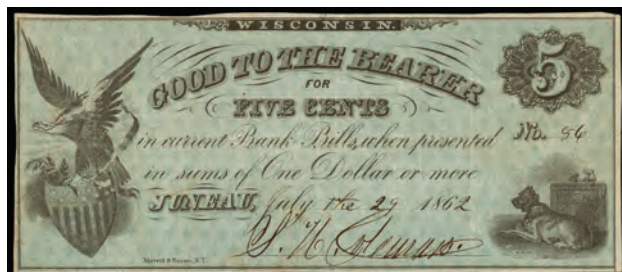 WISCONSIN.
GOOD TO THE BEARER
5
FOR
FIVE CENTS
in current Bank Bills, when presented
No. 56
in sums of One Dollar or more
JUNEAU, July the 29 1862
S. H. Coleman